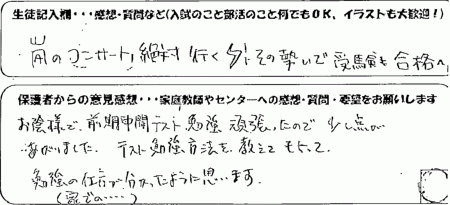 生徒記入欄・・・感想・質問など(入試のこと部活のこと何でもOK、イラストも大歓迎!)
嵐のコンサート絶対行くぞ!その勢いで受験も合格へ
保護者からの意見感想・・・家庭教師やセンターへの感想・質問・要望をお願いします
お陰様で、前期中間テスト勉強頑張ったので少し点が
あがりました。テスト勉強方法を教えてもらって、
勉強の仕方が分かったように思います。
(家での・・・・・)